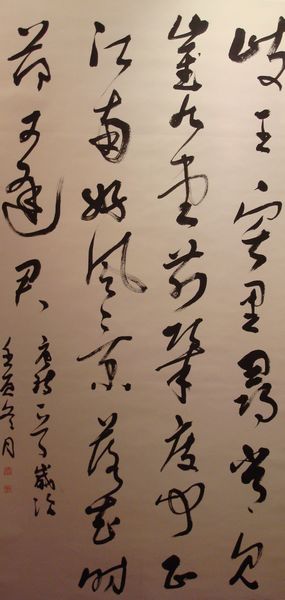 岐王宅里尋常見
崔九堂前幾度聞正
江南好風景落花時
節又逢君
唐詩歲次
壬寅冬月